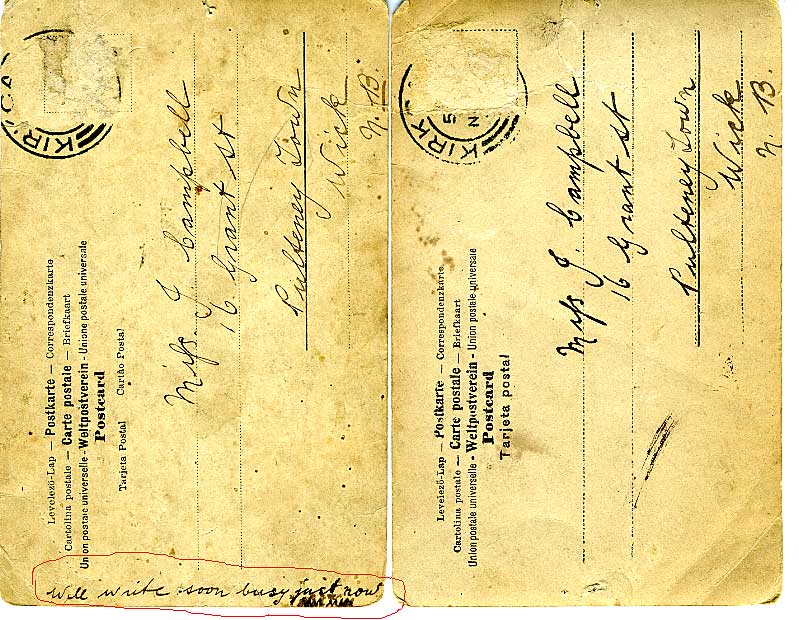 KIRK
Levelezö-Lap — Postkarte — Correspondenzkarte
Cartolina postale — Carte postale — Briefkaart
Union postale universelle - Weltpostverein - Unione postale universale
Postcard
Tarjeta Postal Cartão Postal
Miss J Campbell
16 Grant st
Pulteney Town
Wick
N. B.
Will write soon busy just now
KIRK
Levelezö-Lap — Postkarte — Correspondenzkarte
Cartolina postale — Carte postale — Briefkaart
Union postale universelle - Weltpostverein - Union postale universale
Postcard
Tarjeta postal
Miss J Campbell
16 Grant st
Pulteney Town
Wick
N. B.